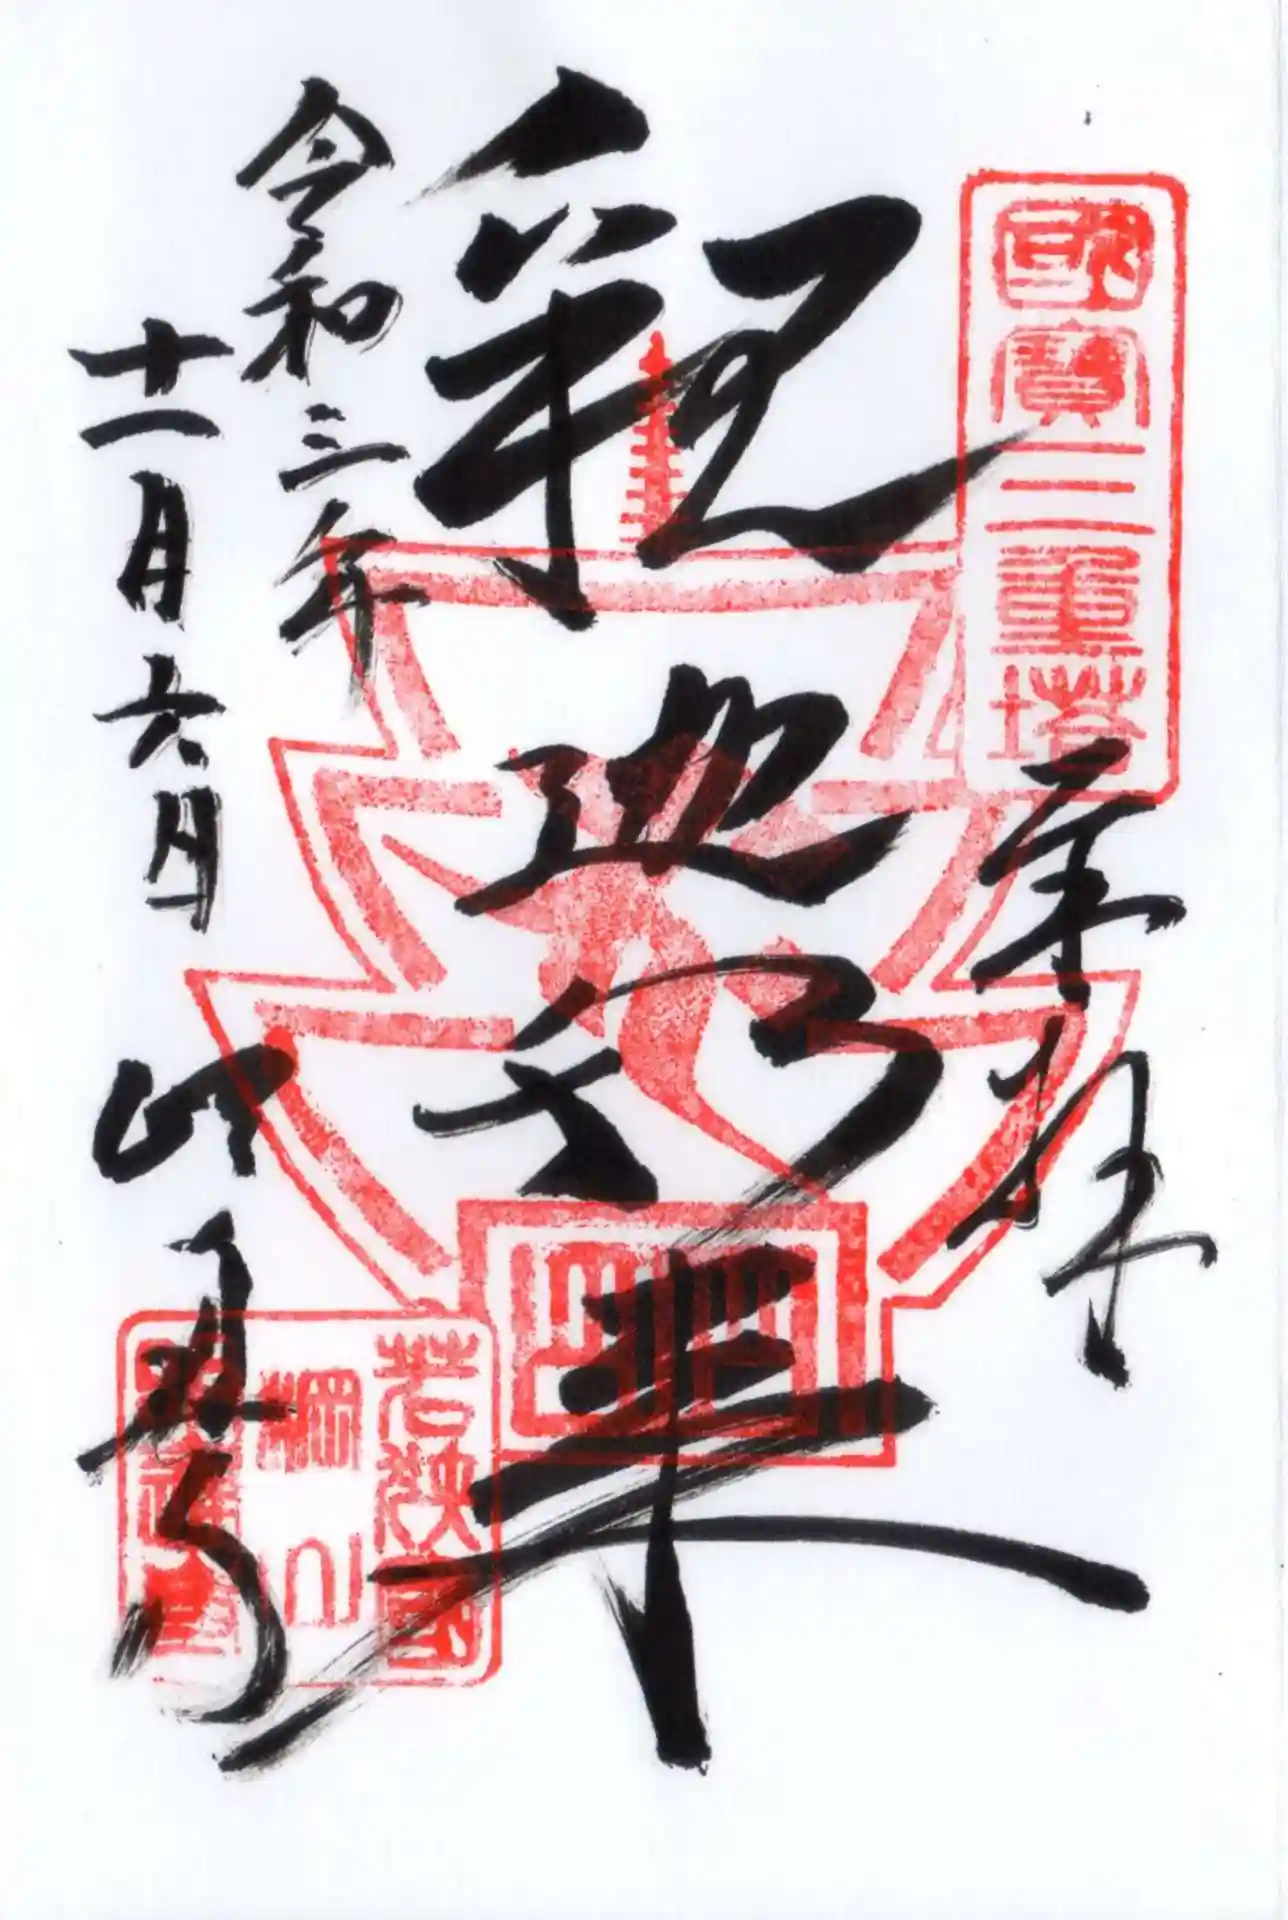 國寶三重塔
奉拝
釈迦
令和三年
十一月六日
明通寺
若狹國
棡山
明通寺